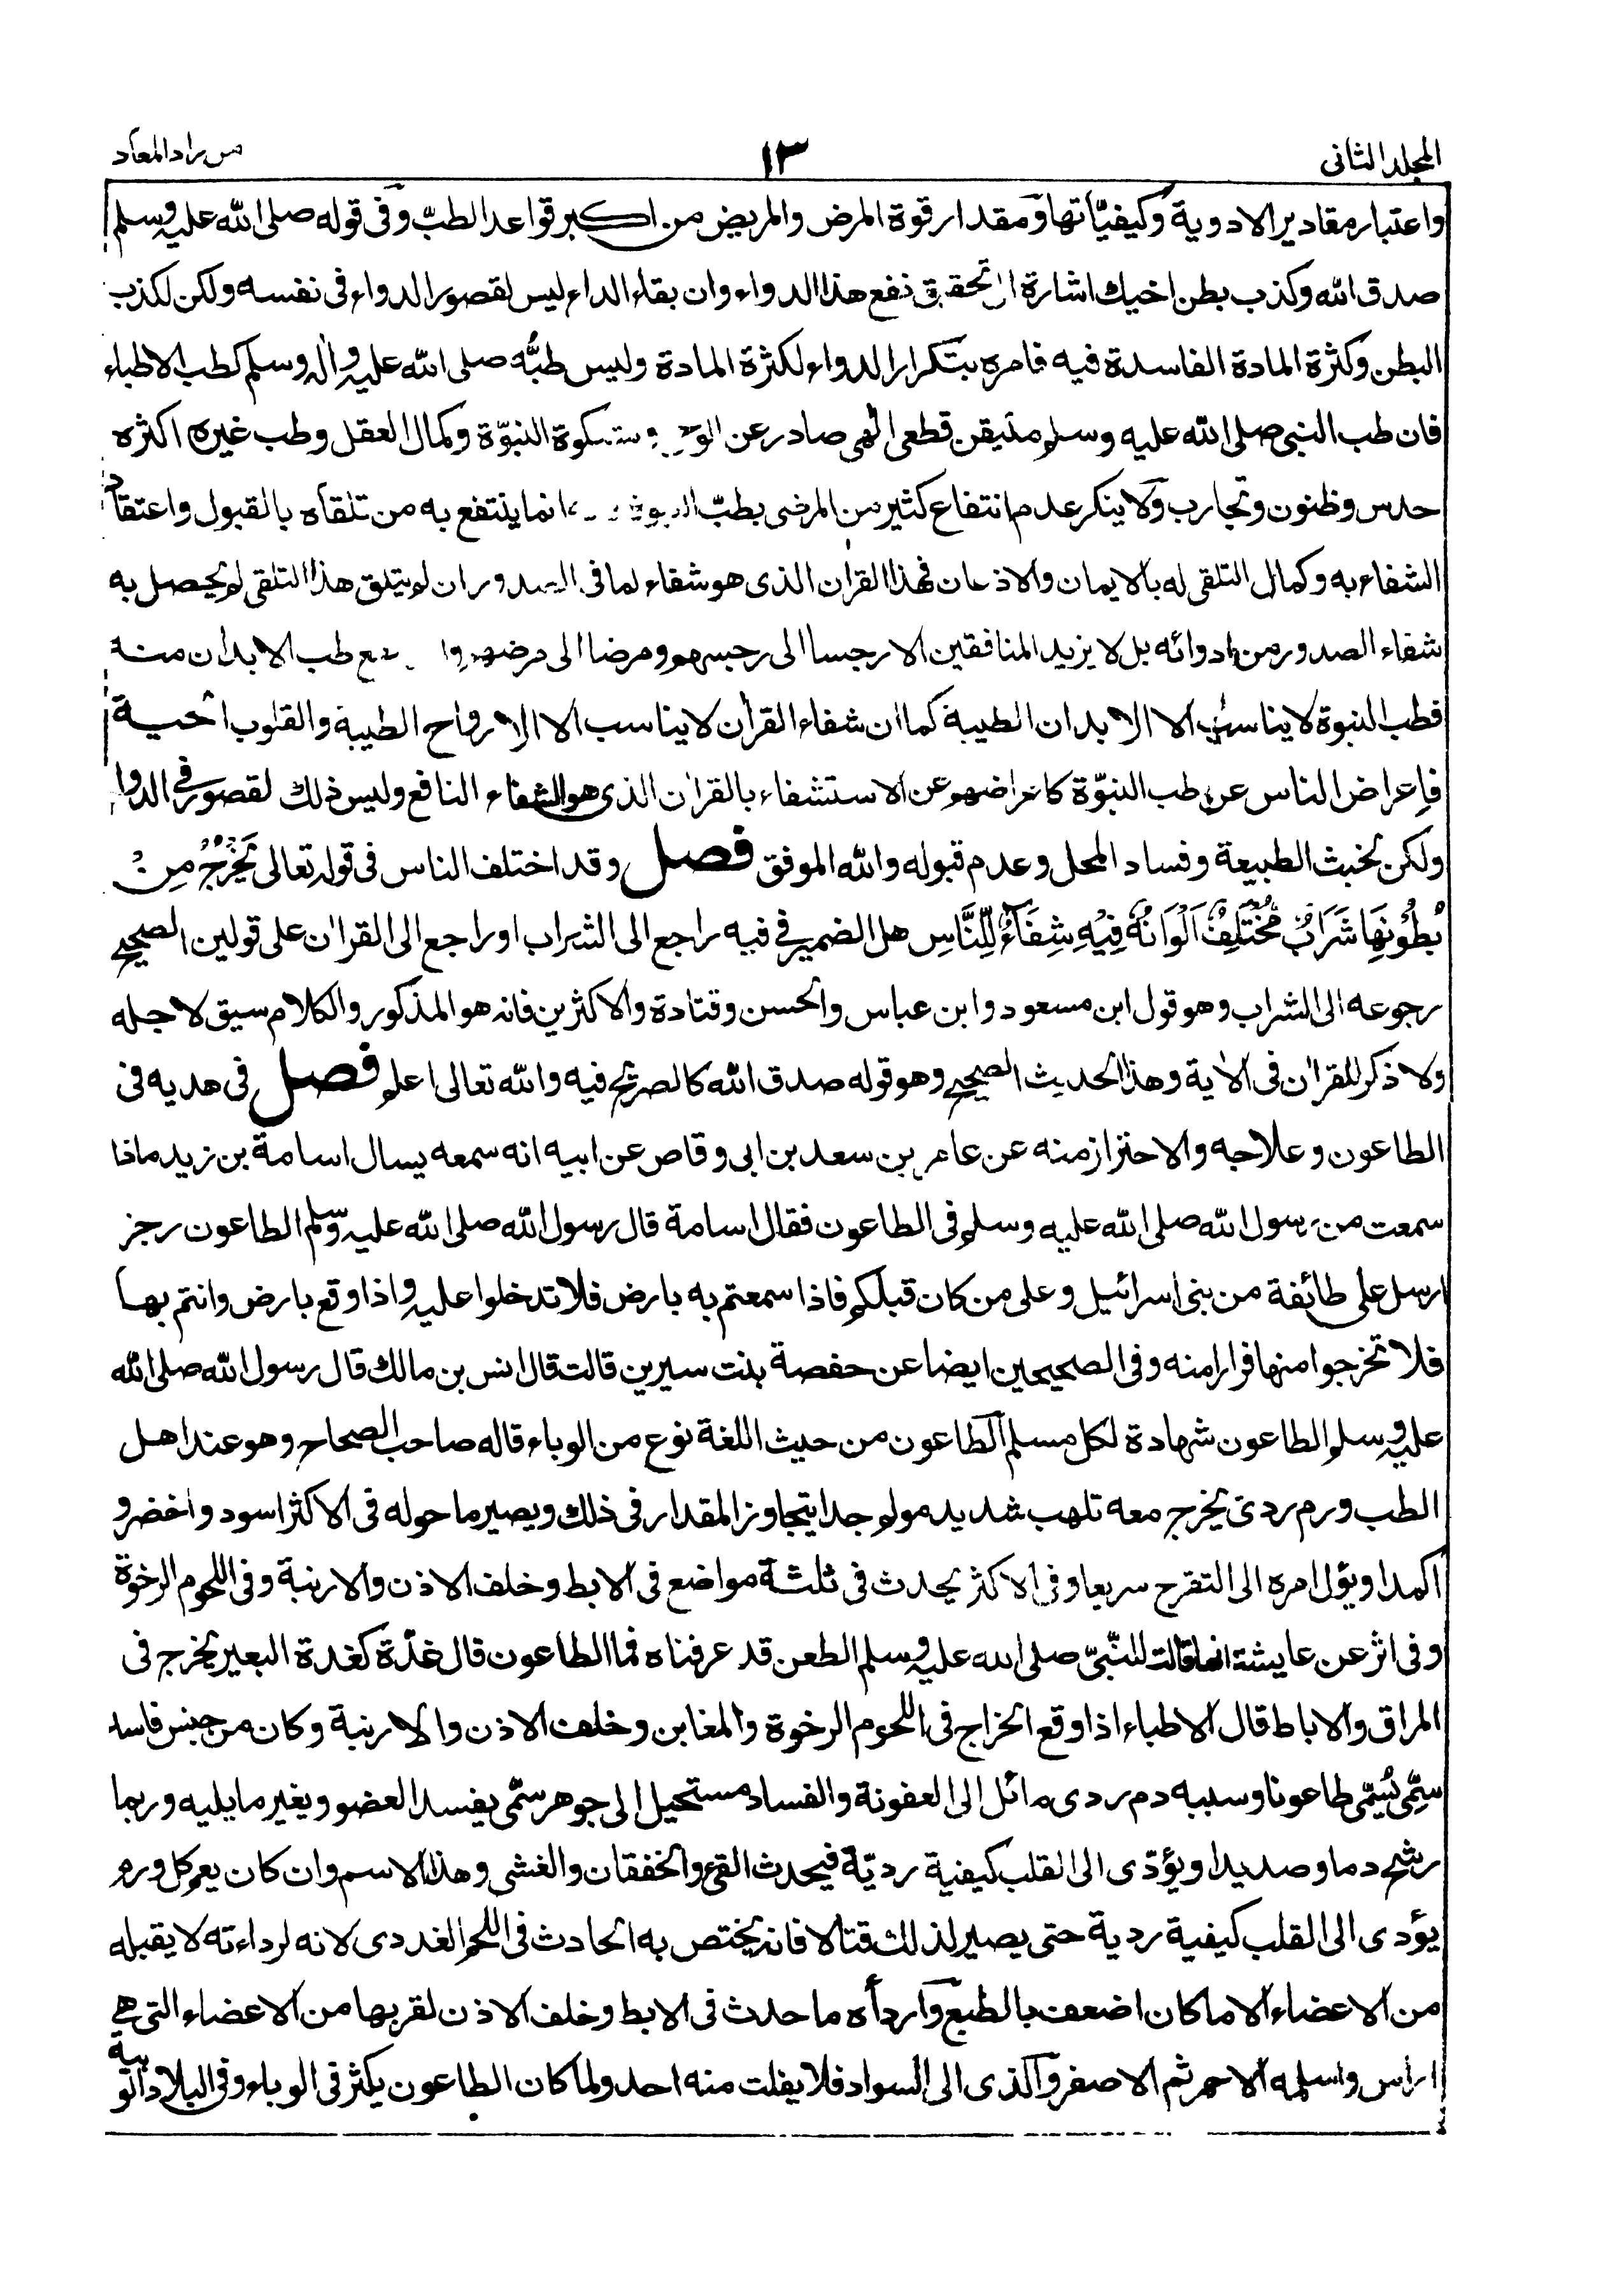 المجلد الثانى
١٣
من زاد المعاد
واعتبار مقادير الادوية وكيفيّاتها ومقدار قوة المرض والمريض من اكبر قواعد الطبّ وفى قوله صلى الله عليه وسلم
صدق الله وكذب بطن اخيك اشارة الى تحقيق نفع هذا الدواء وان بقاء الداء ليس لقصور الدواء فى نفسه ولكن لكذب
البطن وكثرة المادة الفاسدة فيه فامره بتكرار الدواء لكثرة المادة وليس طبُّه صلى الله عليه واله وسلم كطب الاطباء
فان طب النبى صلى الله عليه وسلم متيقن قطعى الهى صادر عن الوحى ومشكوة النبوّة وكمال العقل وطب غيره اكثره
حدس وظنون وتجارب ولا ينكر عدم انتفاع كثير من المرضى بطبّ النبوة انما ينتفع به من تلقاه بالقبول واعتقاد
الشفاء به وكمال التلقى له بالايمان والاذعان فهذا القرآن الذى هو شفاء لما فى الصدور ان لم يتلق هذا التلقى لم يحصل به
شفاء الصدور من ادوائه بل لا يزيد المنافقين الا رجسا الى رجسهم ومرضا الى مرضهم طب الابدان منه
فطب النبوة لا يناسب الا الابدان الطيبة كما ان شفاء القرآن لا يناسب الا الارواح الطيبة والقلوب الحية
فاعراض الناس عن طب النبوّة كاعراضهم عن الاستشفاء بالقرآن الذى هو الشفاء النافع وليس ذلك لقصور فى الدوا
ولكن لخبث الطبيعة وفساد المحل وعدم قبوله والله الموفق فصل وقد اختلف الناس فى قوله تعالى يَخْرُجُ مِنْ
بُطُوْنِهَا شَرَابٌ مُّخْتَلِفٌ اَلْوَانُهٗ فِيْهِ شِفَآءٌ لِّلنَّاسِ هل الضمير فى فيه راجع الى الشراب او راجع الى القرآن على قولين الصحيح
رجوعه الى الشراب وهو قول ابن مسعود وابن عباس والحسن وقتادة والاكثرين فانه هو المذكور والكلام سيق لاجله
ولا ذكر للقرآن فى الآية وهذا الحديث الصحيح وهو قوله صدق الله كالصريح فيه والله تعالى اعلم فصل فى هديه فى
الطاعون وعلاجه والاحتراز منه عن عامر بن سعد بن ابى وقاص عن ابيه انه سمعه يسال اسامة بن زيد ماذا
سمعت من رسول الله صلى الله عليه وسلم فى الطاعون فقال اسامة قال رسول الله صلى الله عليه وسلم الطاعون رجز
ارسل على طائفة من بنى اسرائيل وعلى من كان قبلكم فاذا سمعتم به بارض فلا تدخلوا عليه واذا وقع بارض وانتم بها
فلا تخرجوا منها فرارا منه وفى الصحيحين ايضا عن حفصة بنت سيرين قالت قال انس بن مالك قال رسول الله صلى الله
عليه وسلم الطاعون شهادة لكل مسلم الطاعون من حيث اللغة نوع من الوباء قاله صاحب الصحاح وهو عند اهل
الطب ورم ردئ يخرج معه تلهب شديد مولم جدا يتجاوز المقدار فى ذلك ويصير ما حوله فى الاكثر اسود واخضر و
اكمد او يؤل امره الى التقرح سريعا وفى الاكثر يحدث فى ثلثة مواضع فى الابط وخلف الاذن والارنبة وفى اللحوم الرخوة
وفى اثر عن عايشة انها قالت للنّبىّ صلى الله عليه وسلم الطعن قد عرفناه فما الطاعون قال غدّة كغدة البعير يخرج فى
المراق والاباط قال الاطباء اذا وقع الخراج فى اللحوم الرخوة والمغابن وخلف الاذن والارنبة وكان من جنس فاسد
سمّى يُسمّى طاعونا وسببه دم ردى مائل الى العفونة والفساد مستحيل الى جوهر سمّى يفسد العضو ويغير ما يليه وربما
رشح دما وصديدا ويؤدّى الى القلب كيفية رديّة فيحدث القئ والخفقان والغشى وهذا الاسم وان كان يعم كل ورم
يؤدى الى القلب كيفية ردية حتى يصير لذلك قتالا فانه يختص به الحادث فى اللحم الغددى لانه لرداءته لا يقبله
من الاعضاء الا ما كان اضعف بالطبع وارداه ما حدث فى الابط وخلف الاذن لقربها من الاعضاء التى هى
اراس واسلمه الاحمر ثم الاصفر والذى الى السواد فلا يفلت منه احد ولما كان الطاعون يكثر فى الوباء وفى البلاد الوبية